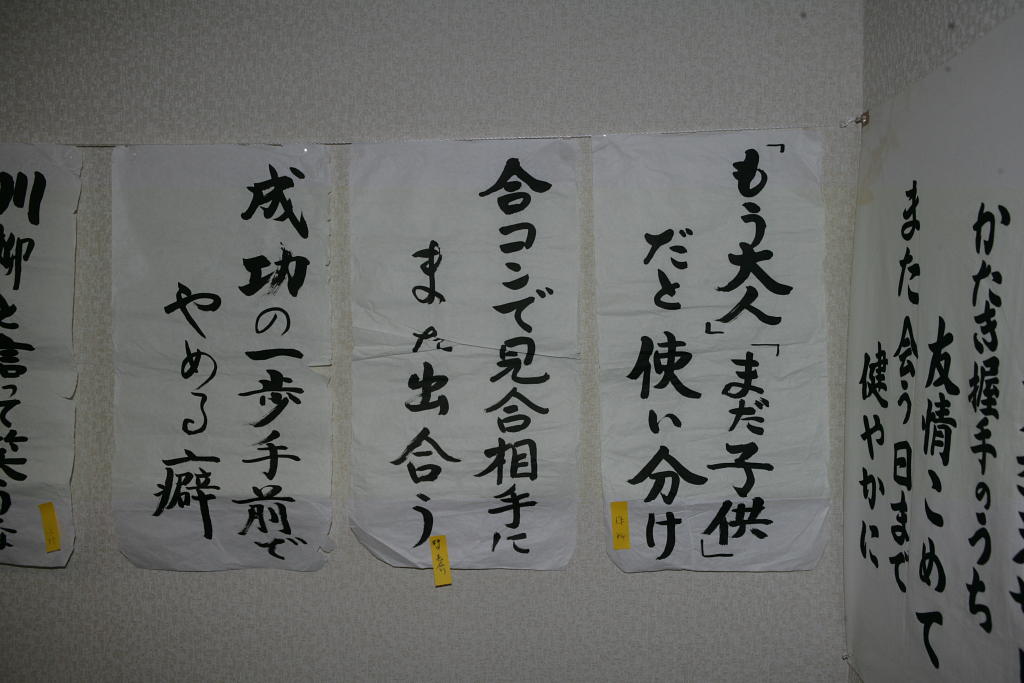 かたき握手のうち
友情こめて
また会う日まで
健やかに
「もう大人」「まだ子供」
だと使い分け
合コンで見合相手に
また出合う
成功の一歩手前で
やめる癖
川柳と言って笑うな